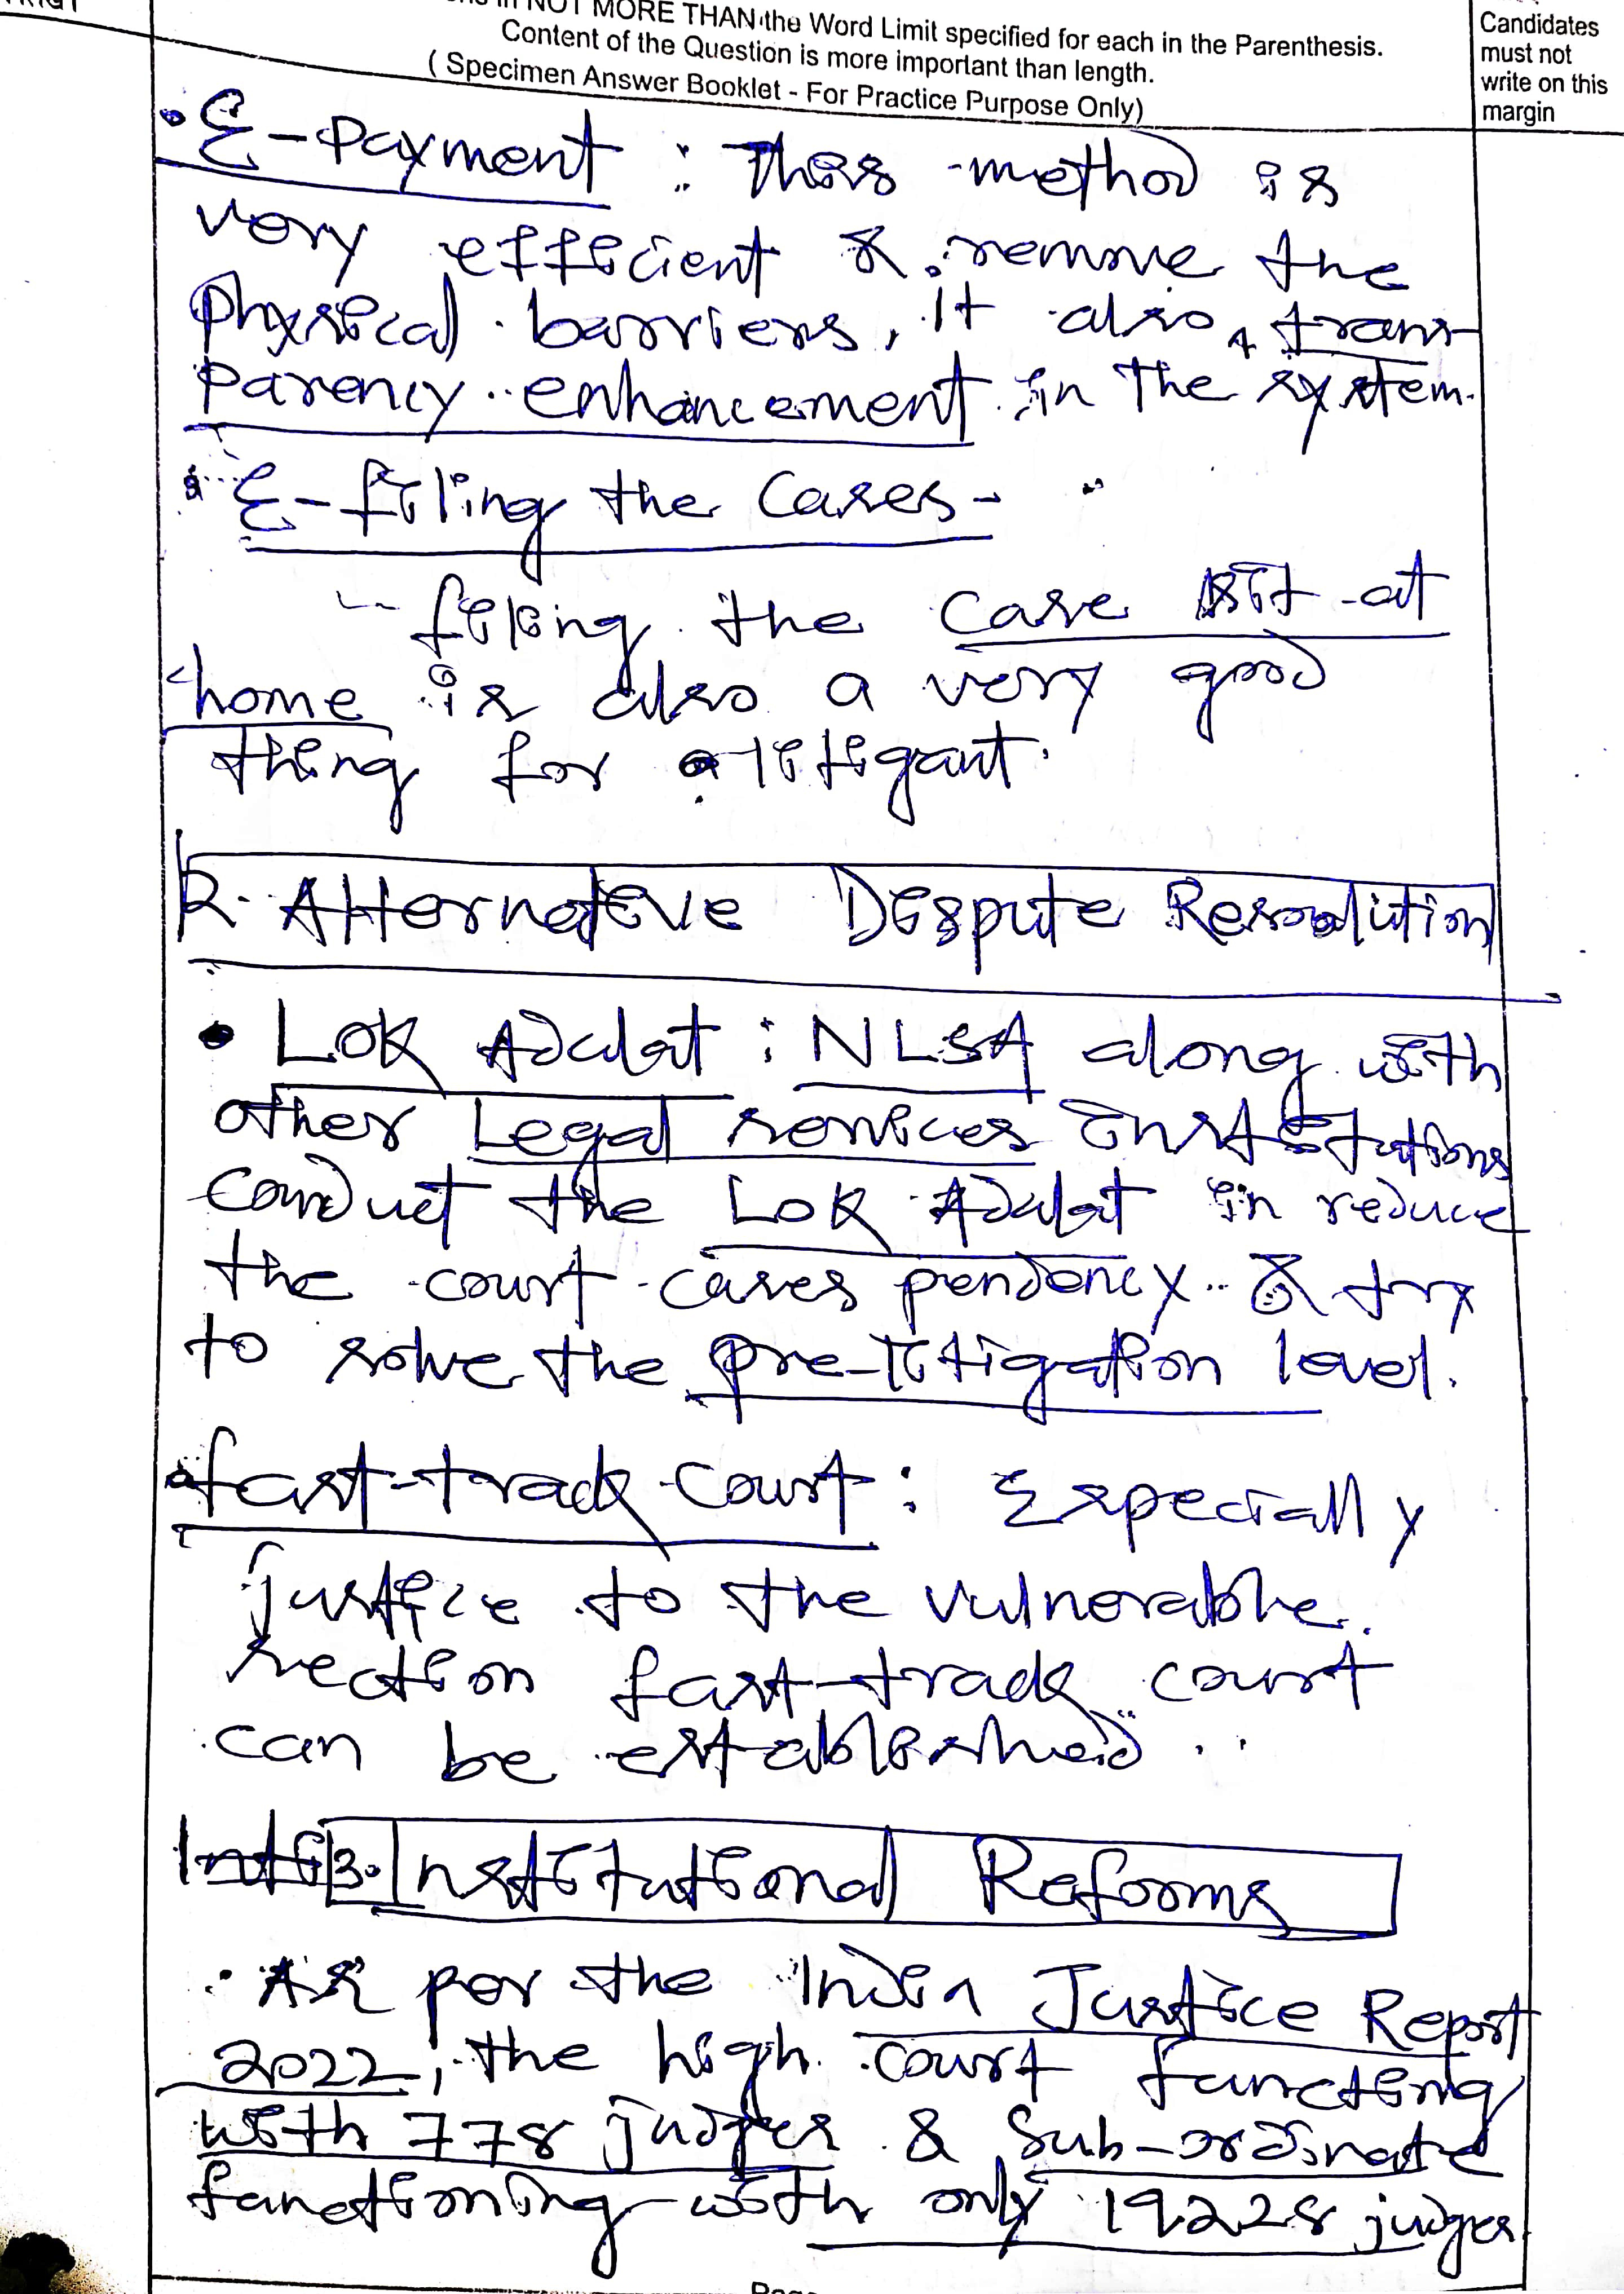 NOT MORE THAN the Word Limit specified for each in the Parenthesis.
Content of the Question is more important than length.
( Specimen Answer Booklet - For Practice Purpose Only)
Candidates
must not
write on this
margin
• E-Payment : This method is
very efficient & remove the
physical barriers, it also trans-
parency enhancement in the system.
• E-filing the Cases -
filing the case sit at
home is also a very good
thing for a litigant.
2. Alternative Dispute Resolution
• Lok Adalat : NLSA along with
other Legal services institutions
conduct the Lok Adalat in reduce
the court cases pendency & try
to solve the pre-litigation level.
• fast-track Court : Especially
justice to the vulnerable
section fast-track court
can be established.
3. Institutional Reforms
• As per the India Justice Report
2022, the high court functing
with 778 judges & Sub-ordinate
functioning with only 19228 judges.